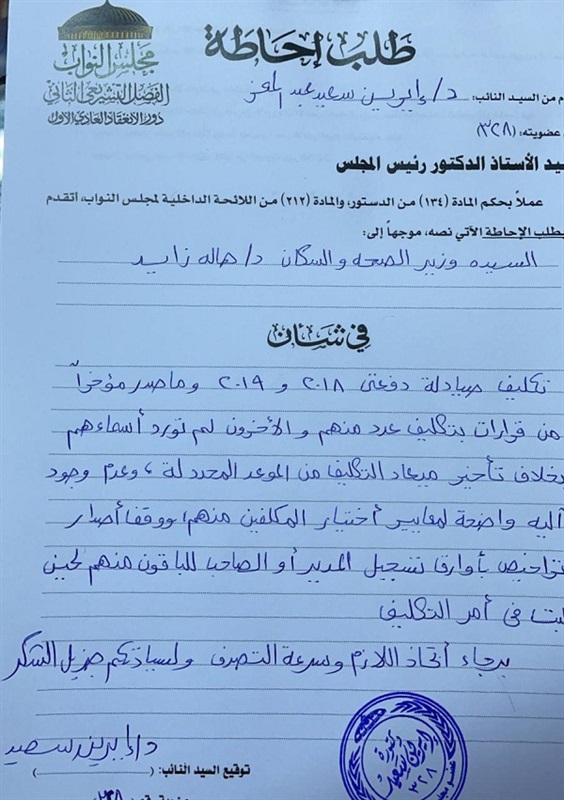 مجلس النواب
الفصل التشريعي الثاني
دور الانعقاد العادي الأول
طلب إحاطة
م من السيد النائب: د/ إيرين سعيد عبد المعز
عضويته: (٣٢٨)
يد الأستاذ الدكتور رئيس المجلس
عملاً بحكم المادة (١٣٤) من الدستور، والمادة (٢١٢) من اللائحة الداخلية لمجلس النواب، أتقدم
بطلب الإحاطة الآتي نصه، موجهاً إلى:
السيده وزير الصحه والسكان د/ هاله زايد
في شأن
تكليف صيادلة دفعتى ٢٠١٨ و ٢٠١٩ وما صدر مؤخراً
من قرارات بتكليف عدد منهم و الأخرون لم تورد أسماءهم
بخلاف تأخير ميعاد التكليف من الموعد المحدد له، وعدم وجود
آليه واضحة لمعايير أختيار المكلفين منهم، ووقف أصدار
تراخيص بأوراق تسجيل المدير أو الصاحب للباقون منهم لحين
لبت فى أمر التكليف
برجاء أتخاذ اللازم وسرعة التصرف ولسيادتكم جزيل الشكر
د/ إيرين سعيد
توقيع السيد النائب: ( )
دكتورة
إيرين سعيد
٣٢٨